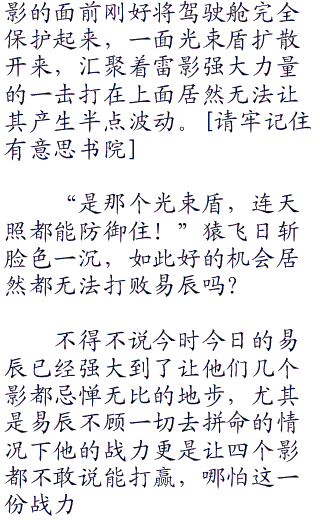 影的面前刚好将驾驶舱完全
保护起来，一面光束盾扩散
开来，汇聚着雷影强大力量
的一击打在上面居然无法让
其产生半点波动。[请牢记住
有意思书院]
“是那个光束盾，连天
照都能防御住！”猿飞日斩
脸色一沉，如此好的机会居
然都无法打败易辰吗？
不得不说今时今日的易
辰已经强大到了让他们几个
影都忌惮无比的地步，尤其
是易辰不顾一切去拼命的情
况下他的战力更是让四个影
都不敢说能打赢，哪怕这一
份战力